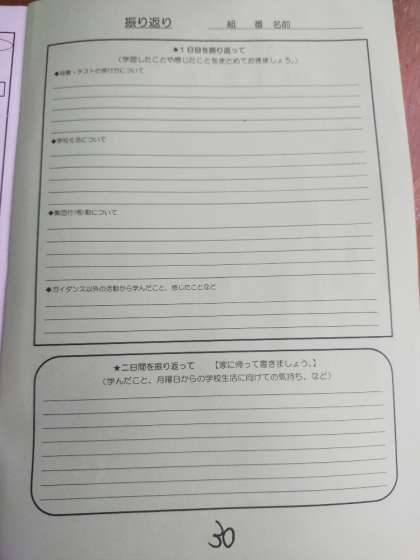 振り返り　　組　番　名前
★1日目を振り返って
（学習したことや感じたことをまとめておきましょう。）
◆授業・テストの受け方について
◆学校生活について
◆集団行(宿)動について
◆ガイダンス以外の活動から学んだこと、感じたことなど
★二日間を振り返って　【家に帰って書きましょう。】
（学んだこと、月曜日からの学校生活に向けての気持ち、など）
30